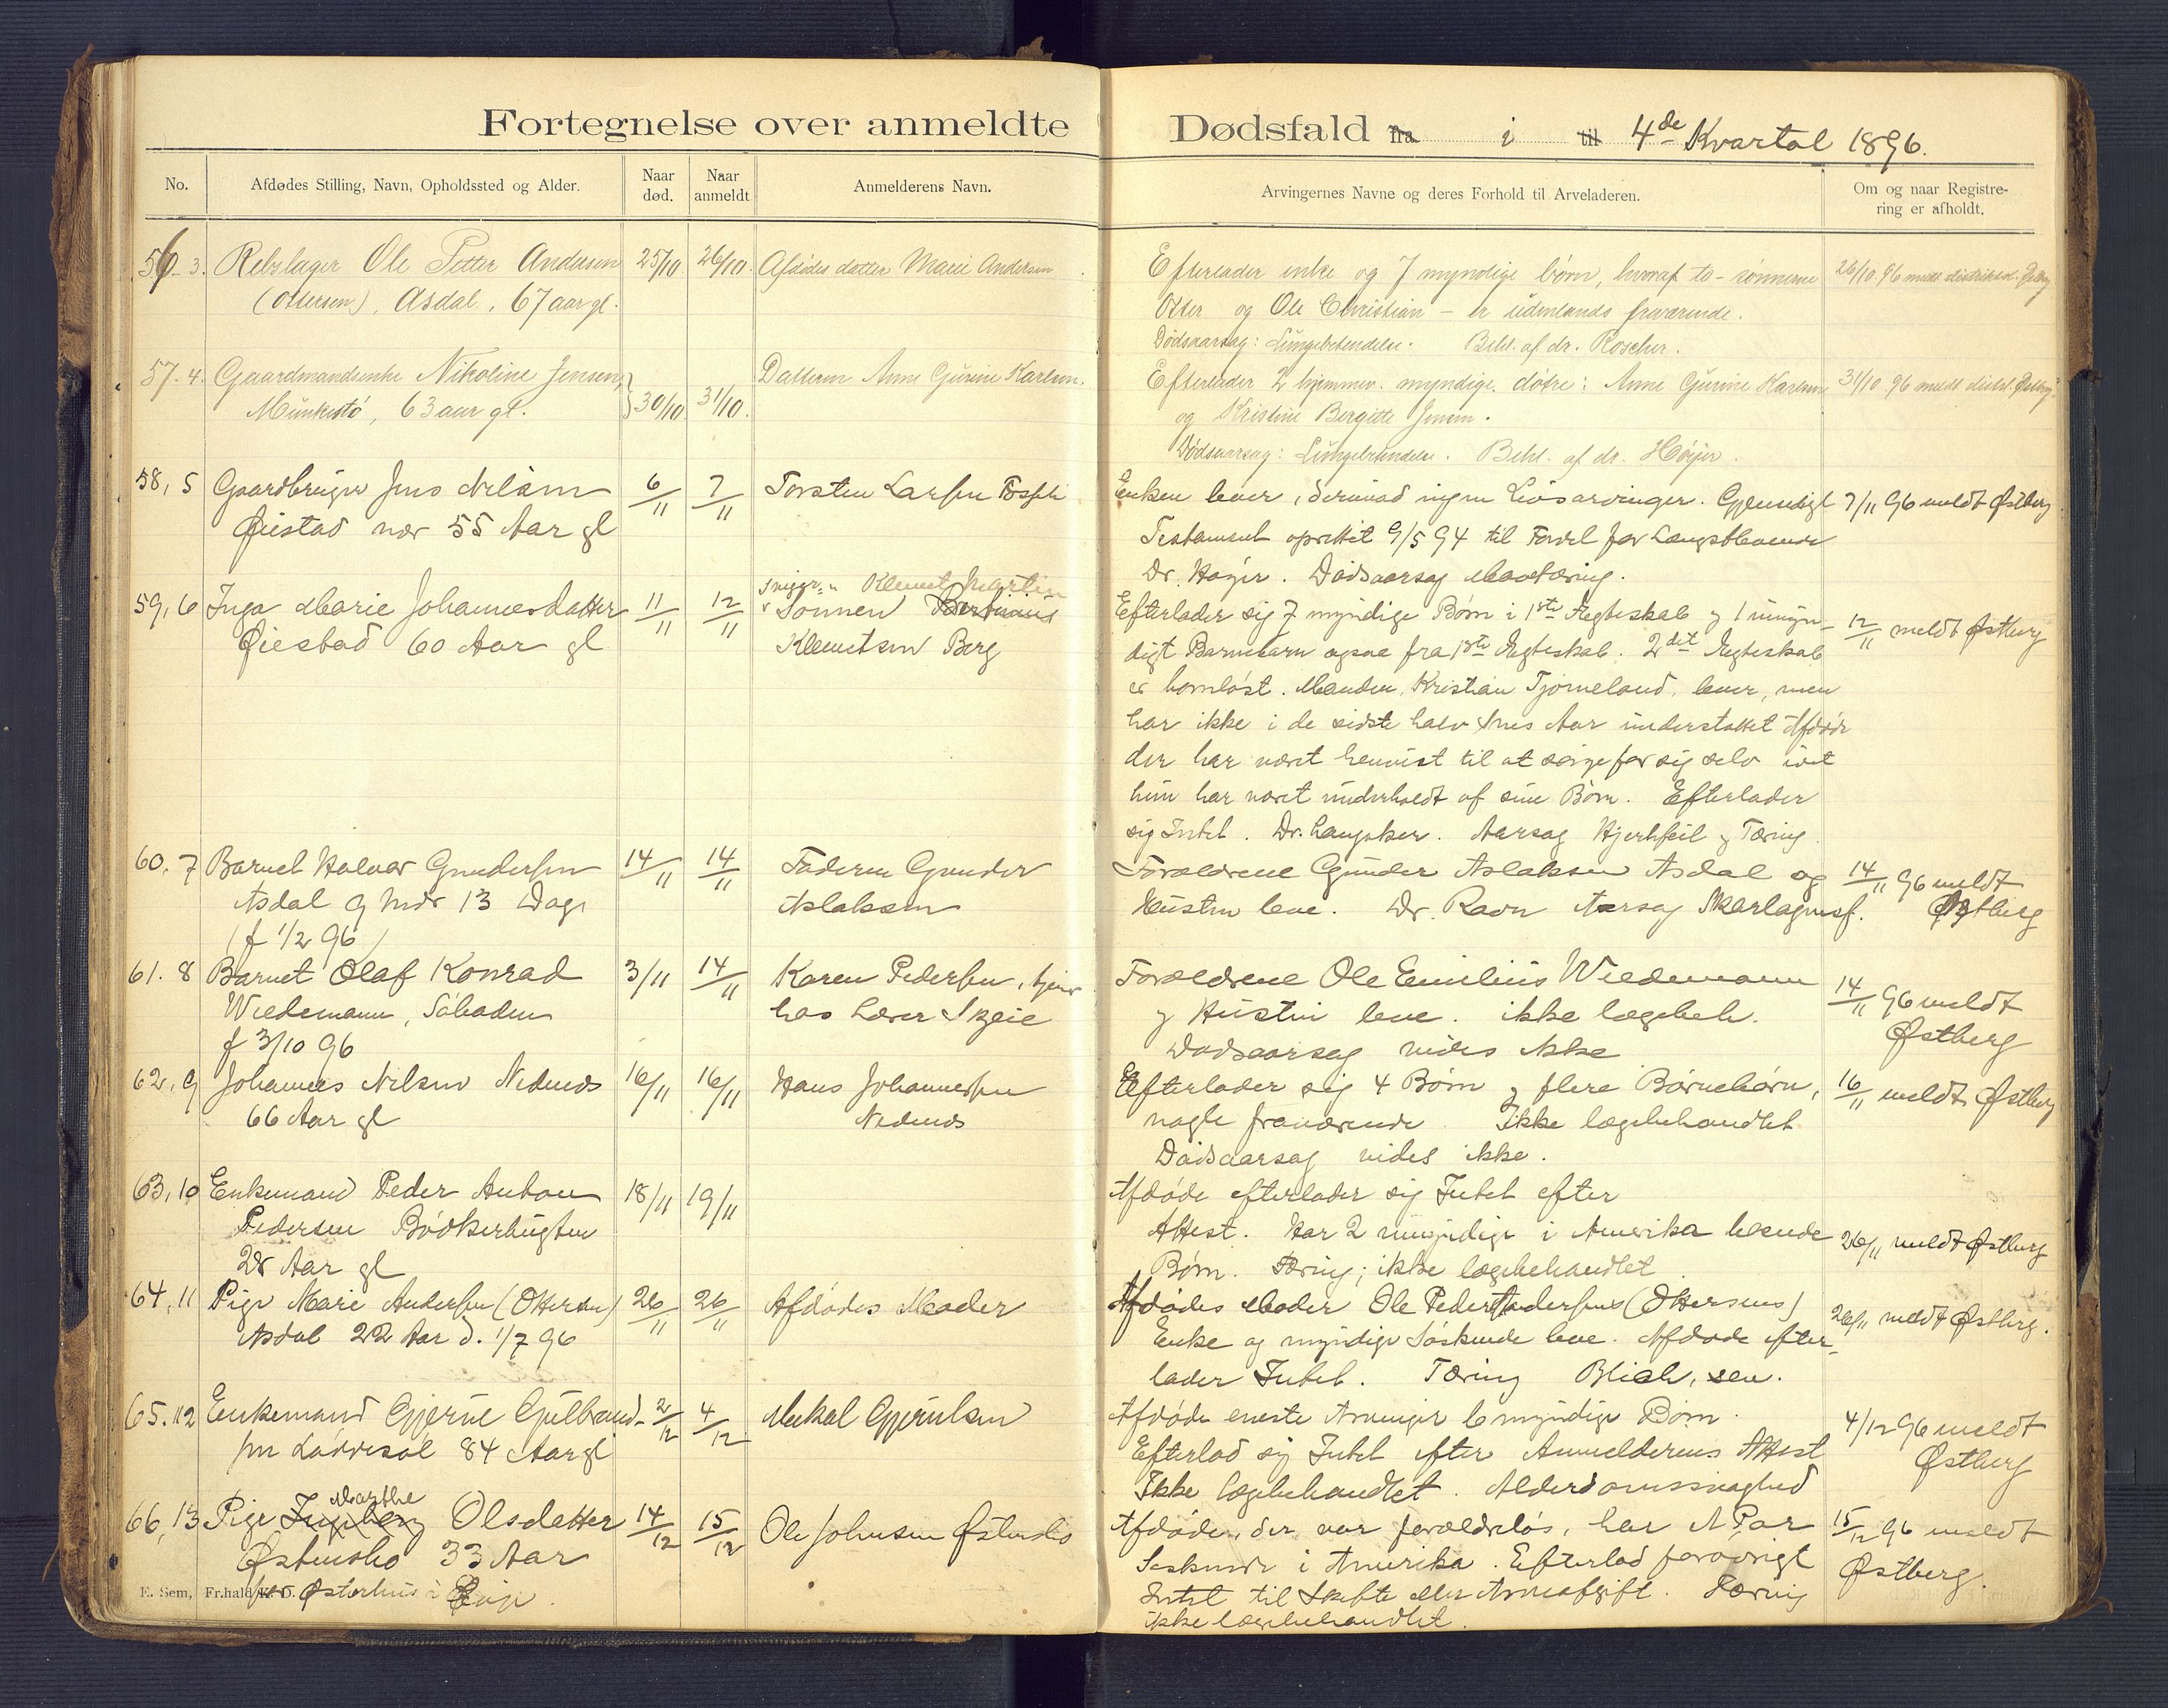 Fortegnelse over anmeldte Dødsfald fra i til 4de Kvartal 1896.
No. Afdødes Stilling, Navn, Opholdssted og Alder. Naar død. Naar anmeldt Anmelderens Navn. Arvingernes Navne og deres Forhold til Arveladeren. Om og naar Registrering er afholdt.
56-3. Rebslager Ole Petter Andersen 25/10. 26/10. Afdødes datter Marie Andersen
(Ottersen), Asdal, 67 aar gl.
Efterlader enke og 7 myndige børn, hvoraf to - sønnerne
Otter og Ole Christian - er udenlands fraværende.
Dødsaarsag: Lungebetendelse. Behl. af dr. Roscher.
26/10 96 meldt
57.4. Gaardmandsenke Nikoline Jensen,
Munkestø, 63 aar gl. 30/10. 31/10. Datteren Anne Gurine Karlsen.
Efterlader 2 hjemmev. myndige døtre: Anne Gurine Karlsen
og Kristine Bergitte Jensen.
Dødsaarsag: Lungebetendelse. Behl. af dr. Høyer.
31/10 96 meldt
58, 5 Gaardbruger Jens Nilsen 6/11 7/11 Torsten Larsen
Øiestad nær 55 Aar gl
Enken lever, derimod ingen Livsarvinger. Gjensidigt
Testament oprettet 9/5 94 til Fordel for Længstlevende
Dr. Høyer. Dødsaarsag Mavetæring.
7/11 96 meldt Østberg
59, 6 Inga Marie Johannesdatter 11/11 12/11 Klemet Martin
Sønnen
Øiestad 60 Aar gl Klemetsen Berg
Efterlader sig 7 myndige Børn i 1ste Ægteskab og 1 umyn-
digt Barnebarn ogsaa fra 1ste Ægteskab. 2det Ægteskab
er barnløst. Manden, Kristian Tjømeland, lever, men
har ikke i de sidste halv Snes Aar understøttet Afdøde
der har været henvist til at sørge for sig selv idet
hun har været underholdt af sine Børn. Efterlader
sig Intet. Dr. Langaker. Aarsag Hjertfeil og Tæring.
12/11 meldt Østberg
60. 7 Barnet Halvor Gundersen 14/11 14/11 Faderen Gunder
Asdal 9 Mdr 13 Dage Aslaksen
(f 1/2 96)
Forældrene Gunder Aslaksen Asdal og
Hustru leve. Dr. Ravn Aarsag Skarlagensf.
14/11 96 meldt
Østberg
61. 8 Barnet Olaf Konrad 3/11 14/11 Karen Pedersen,
Wiedemann, Søboden hos Lærer Skeie
f 3/10 96
Forældrene Ole Emilius Wiedemann
og Hustru leve. ikke lægebeh.
Dødsaarsag vides ikke
14/11 96 meldt
Østberg
62, 9 Johannes Nilsen Nedenes 16/11 16/11 Hans Johannessen
66 Aar gl Nedenes
Efterlader sig 4 Børn og flere Børnebørn,
nogle fraværende. Ikke lægebehandlet
Dødsaarsag vides ikke.
16/11 meldt Østberg
63, 10 Enkemand Peder Anton 18/11 19/11
Pedersen Bødkerbugten
28 Aar gl
Afdøde efterlader sig Intet efter
Attest. Har 2 umyndige i Amerika boende
Børn. Tæring; ikke lægebehandlet
26/11 meldt Østberg
64, 11 Pige Marie Andersen (Ottersen) 26/11 26/11 Afdødes Moder
Asdal 22 Aar d. 1/7 96
Afdødes Moder Ole Peder Andersens (Ottersens)
Enke og myndige Søskende leve. Afdøde efter-
lader Intet. Tæring Blich, sen.
26/11 meldt Østberg.
65. 12 Enkemand Gjerue Gulbrand- 2/12 4/12 Mikal Gjerulsen
sen Løddesøl 84 Aar gl
Afdødes eneste Arvinger 6 myndige Børn.
Efterlod sig Intet efter Anmelderens Attest
Ikke lægebehandlet. Alderdomssvaghed
4/12 96 meldt
Østberg
66, 13 Pige Ingeborg Marthe Olsdatter 14/12 15/12 Ole Johnsen Østensbo
Østensbo 33 Aar
Østerhus i
Afdøde, der var forældreløs, har et Par
Søskende i Amerika. Efterlod forøvrigt
Intet til Skifte eller Arveafgift. Tæring
ikke lægebehandlet.
15/12 96 meldt
Østberg.
E. Sem, Fr.hald K. D.